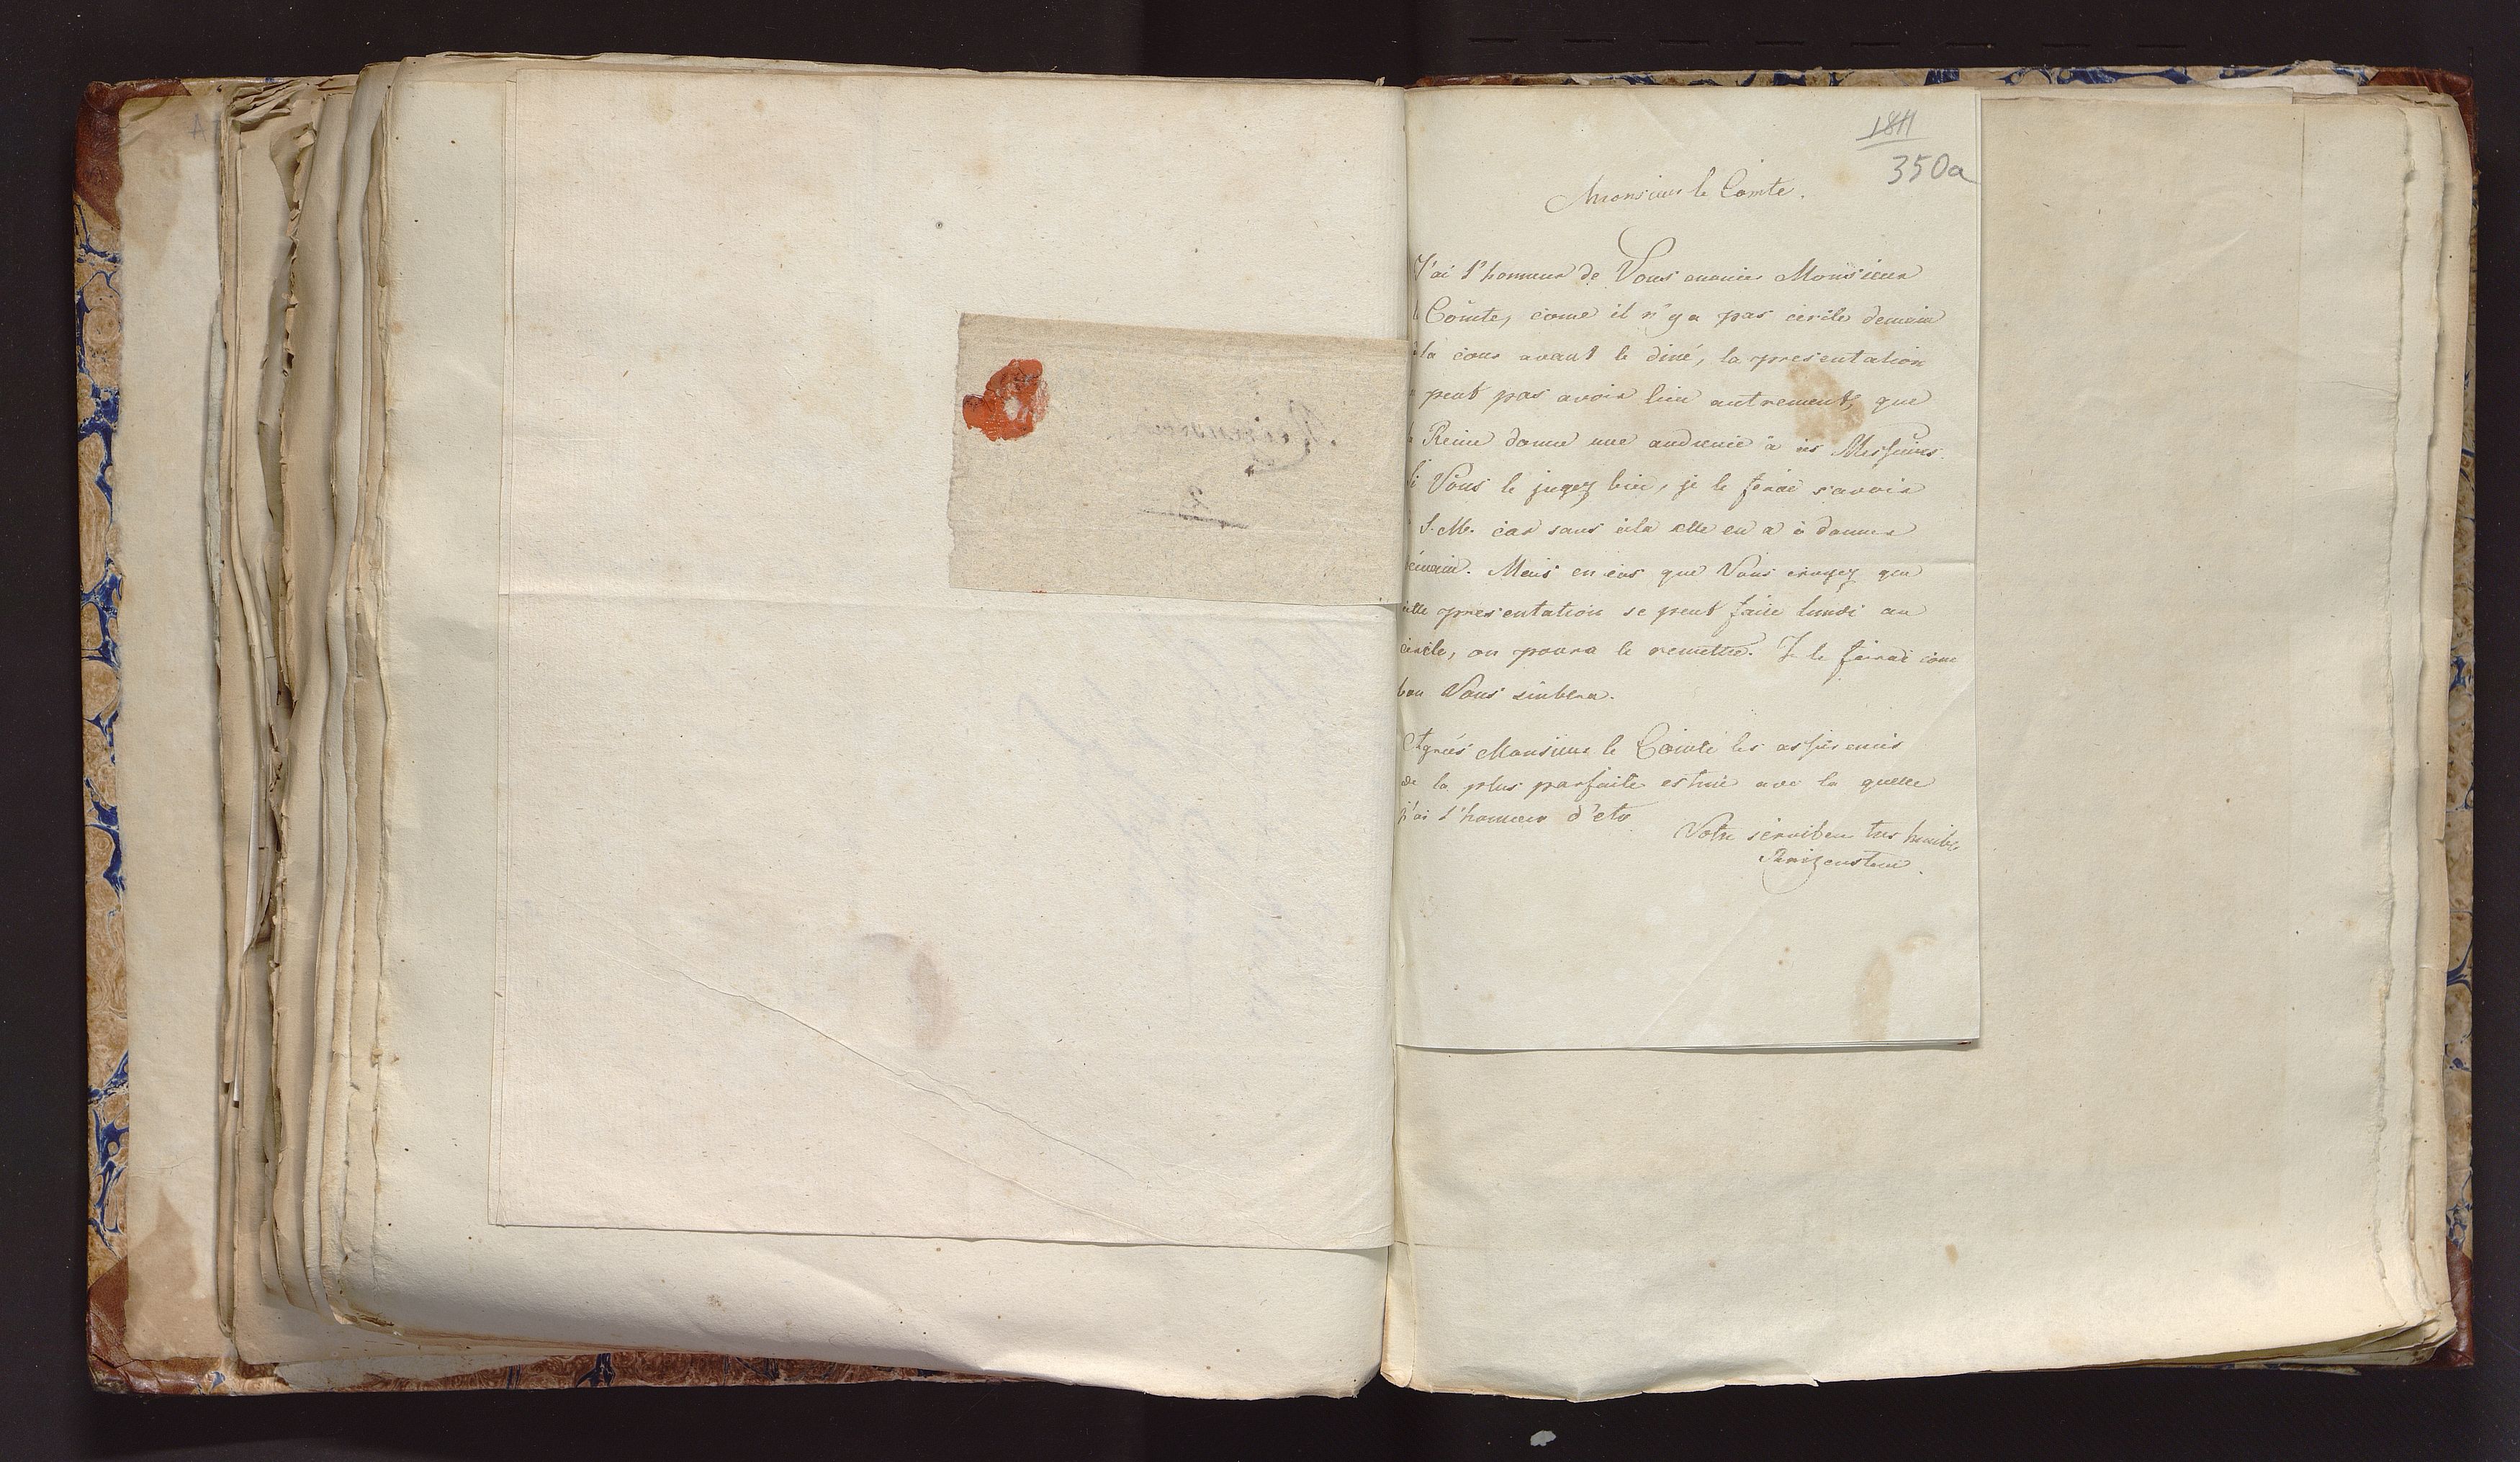 1811
350a
Monsieur le Comte.
J'ai l'honneur de Vous anoncer Monsieur
Comte, come il n'y a pas cercle demain
la cour avant le diné, la presentation
peut pas avoir lieu autrement, que
Reine donne une audience à ces Messieurs.
Si Vous le jugez bien, je le ferai savoir
S. M. car sans cela elle en a à donner
demain. Mais en cas que Vous croyez que
cette presentation se peut faire lundi au
cercle, on poura le remettre. Je le ferai come
bon Vous semblera.
Agreés Monsieur le Comte les assurences
de la plus parfaite estime avec la quelle
j'ai l'honneur d'etre
Votre serviteur tres humble